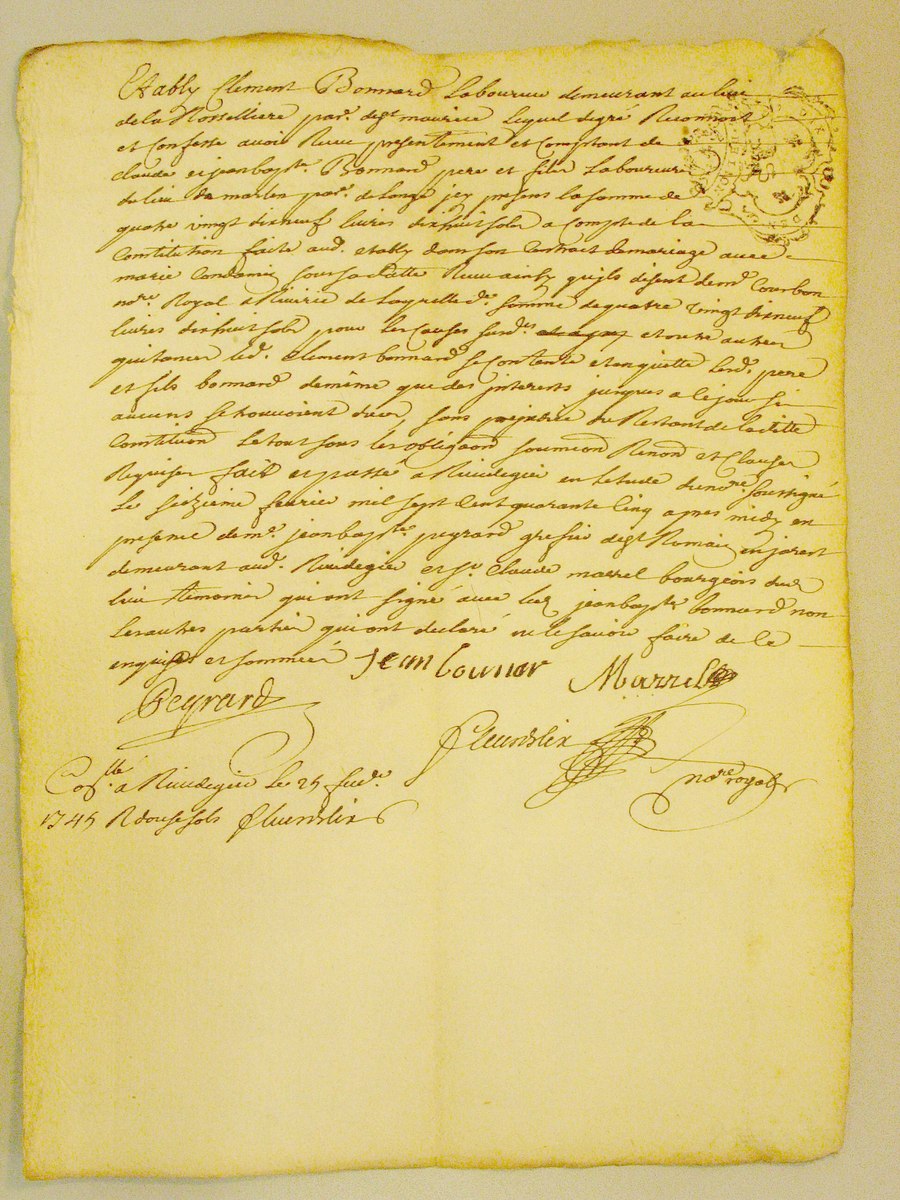 Etably Clement Bonnard Laboureur demeurant au lieu
de la Rossilliere par. de st maurice Lequel de gré Reconnoit
et Confesse avoir Receu presentement et Comptant de
claude et jean bapte. Bonnard pere et fils Laboureurs
du lieu de marlin par. de Longe jcy presens la somme de
quatre vingt dix neuf livres dixhuit sols a Compte de la
Constitution faite aud. etably dans son Contrat de mariage avec
marie Condamin sous sa dicte Receu ainsy qu'ils disent de me. Courbon
nore. Royal a Rivirie de Laquelle de. somme de quatre vingt dix neuf
livres dixhuit sols pour les causes susdes et outre autres
quitances led. Clement bonnard se Contente et en quitte lesd. pere
et fils bonnard de même que des interets jusques a ce jour si
aucuns se trouvoient deus, sans prejudice du Restant de laditte
Constituon Le tout sous les obligaons soumions Renons et Clauses
Requises fait et passé a Rivedegier en letude du nore. soussigné
Le seizieme fevrier mil sept Cent quarante Cinq apres midy en
presence de me. jean bapte. peyrard grefier de st Romain en jarest
demeurant aud. Rivedegier et sr. Claude marrel bourgeois dud
lieu temoins qui ont signé avec led jean bapte bonnard non
les autres parties qui ont declaré ne le savoir faire de ce
enquis et sommés Jean bounar Marrel
Peyrard
fleurdelix
nore royal
Conllé a Rivedegier le 25 fevr.
1745 R douse sols fleurdelix